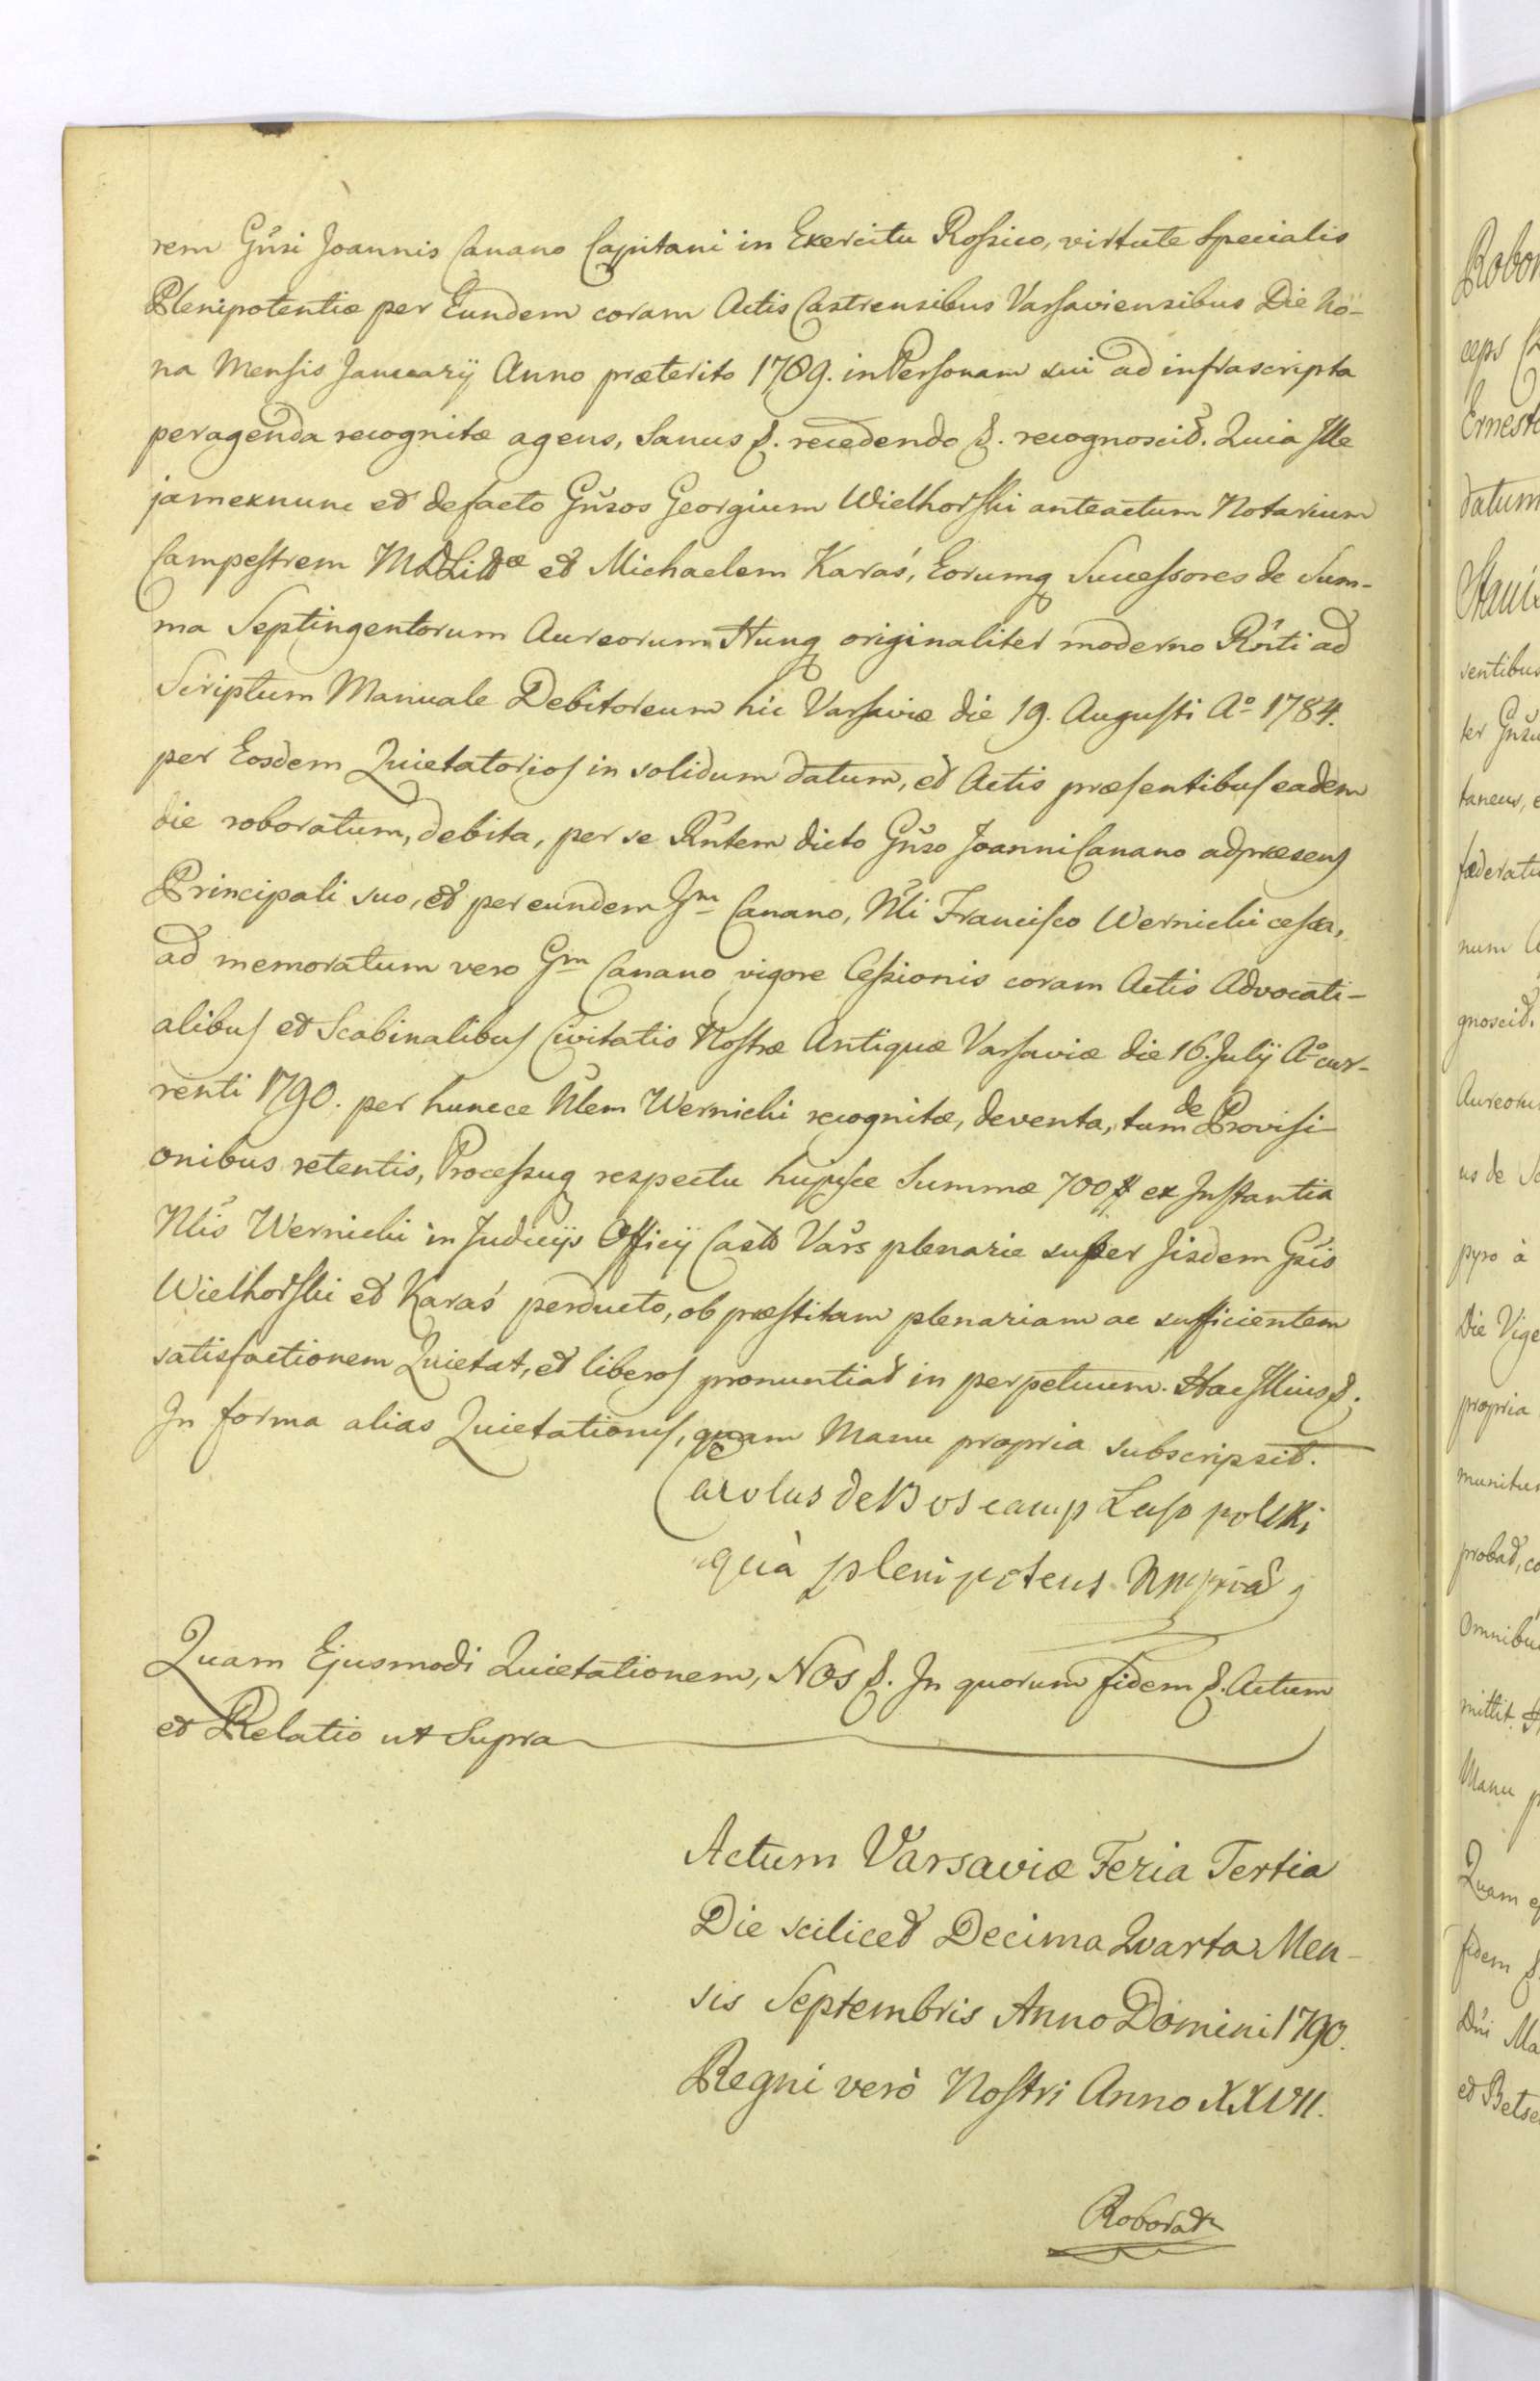 rem Gnŭsi Joannis Canano Capitani in Exercitu Roſsico, virtute Specialis
Plenipotentiæ per Eundem coram Actis Castrensibus Varſaviensibus Die No-
na Menſis Januarÿ Anno præterito 1789. in Perſonam sui ad infrascripta
peragenda recognitæ agens, Sanus &. recedendo &. recognoscit. Quia Ille
jamexnunc et defacto Gnŭsos Georgium Wielhorſki anteactum Notarium
Campeſtrem MDLittæ et Michaelem Karaś, Eorumq Succeſsores de Sum-
ma Septingentorum Aureorum Hung originaliter moderno Rnti ad
Scriptum Manuale Debitoreum hic Varſaviæ die 19. Auguſti Aº 1784.
per Eosdem Quietatorioſ in solidum datum, et Actis præſentibuſ eadem
die roboratum, debita, per se Rntem dicto Gnŭso Joanni Canano adpræsenſ
Principali suo, et per eundem Gm Canano, Nli Franciſco Wernicki ceſsa,
ad memoratum vero Gm Canano vigore Ceſsionis coram Actis Advocati-
alibuſ et Scabinalibuſ Civitatis Noſtræ Antiquæ Varſaviæ die 16. Julÿ Aº cur-
renti 1790. per huncce Nlem Wernicki recognitæ, deventa, tum de Proviſi-
onibus retentis, Proceſsuq respectu hujuſce Summæ 700 # ex Inſtantia
Nlis Wernicki in Judicÿs Officÿ Castr Vars plenarie super Iisdem Gsis
Wielhorſki et Karaś perducto, ob præſtitam plenariam ac sufficientem
satisfactionem Quietat, et liberoſ pronuntiat in perpetuum. Hac Illius &.
In forma alias Quietationiſ, quam Manu propria subscripsit.
Carolus de Boscamp Laſopolski
quà plenipotens mppria
Quam Ejusmodi Quietationem, Nos &. In quorum fidem &. Actum
et Relatio ut Supra
Actum Varsaviæ Feria Tertia
Die scilicet Decima Quarta Men-
sis Septembris Anno Domini 1790.
Regni verò Noſtri Anno XXVII.
Roborat